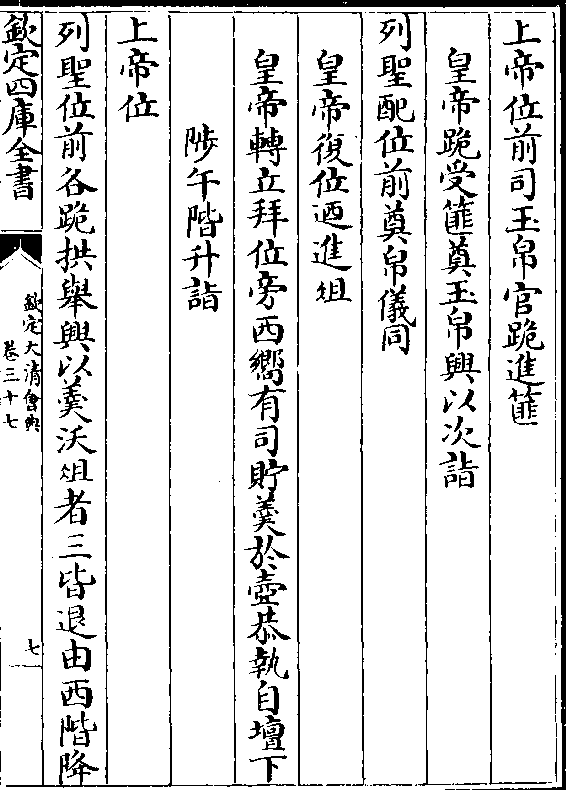 上帝位前司玉帛官跪進篚
皇帝跪受篚奠玉帛興以次詣
列聖配位前奠帛儀同
皇帝復位廼進俎
皇帝轉立拜位旁西嚮有司貯羹於壺恭執自壇下
陟午階升詣
上帝位
列聖位前各跪拱舉興以羹沃俎者三皆退由西階降
欽定四庫全書
欽定大清會典
卷三十七
七